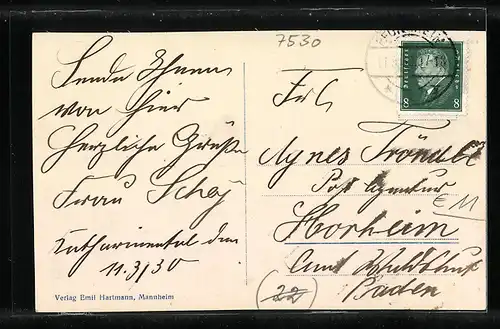 7530
Sende Ihnen
von hier
herzliche Grüße
Frau
Katharinental den
11.3/30
Verlag Emil Hartmann, Mannheim
Deutsches Reich
8 8
Frl
Agnes Tröndle
Post Agentur
Horheim
€ 11
Amt Waldshut
Baden
(22)